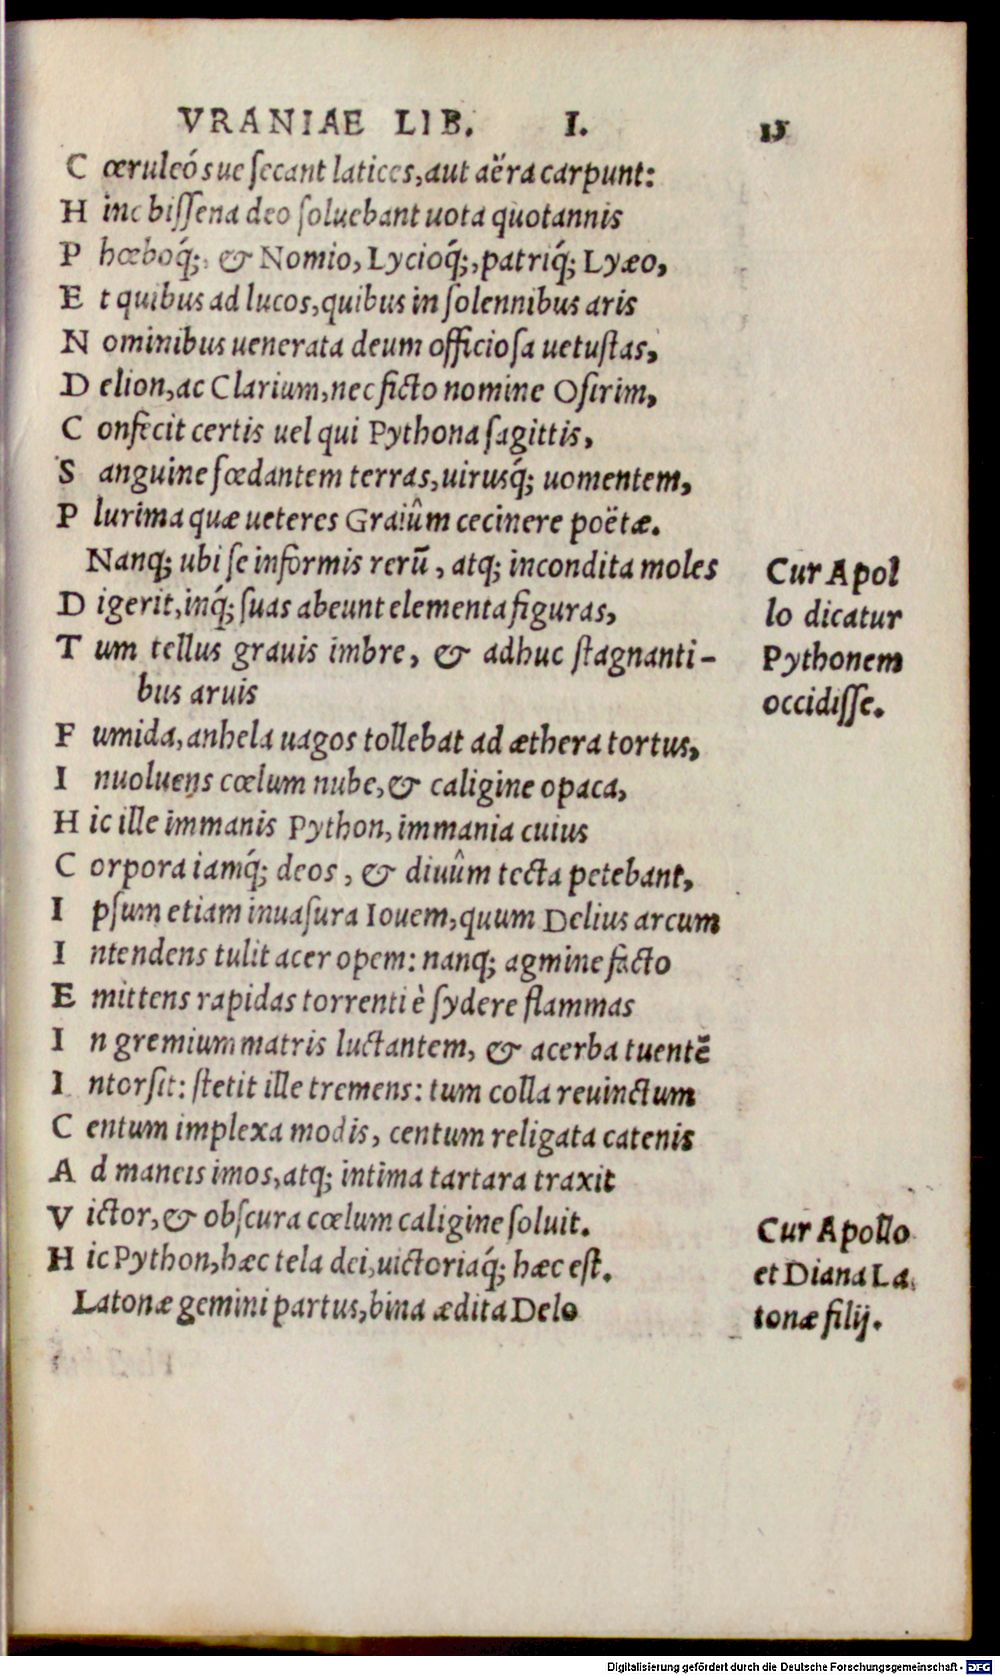 VRANIAE LIB. I. 15
C œruleósue ſecant latices, aut aëra carpunt:
H inc biſſena deo ſoluebant uota quotannis
P hœboq́;, & Nomio, Lycioq́;, patriq́; Lyæo,
E t quibus ad lucos, quibus in ſolennibus aris
N ominibus uenerata deum officioſa uetuſtas,
D elion, ac Clarium, nec ficto nomine Oſirim,
C onfecit certis uel qui Pythona ſagittis,
S anguine fœdantem terras, uirusq́; uomentem,
P lurima quæ ueteres Graiûm cecinere poëtæ.
Nanq; ubi ſe informis rerū, atq; incondita moles
D igerit, inq́; ſuas abeunt elementa figuras,
T um tellus grauis imbre, & adhuc ſtagnanti-
bus aruis
F umida, anhela uagos tollebat ad æthera tortus,
I nuoluens cœlum nube, & caligine opaca,
H ic ille immanis Python, immania cuius
C orpora iamq́; deos, & diuûm tecta petebant,
I pſum etiam inuaſura Iouem, quum Delius arcum
I ntendens tulit acer opem: nanq; agmine facto
E mittens rapidas torrenti è ſydere flammas
I n gremium matris luctantem, & acerba tuentē
I ntorſit: ſtetit ille tremens: tum colla reuinctum
C entum implexa modis, centum religata catenis
A d maneis imos, atq; intima tartara traxit
V ictor, & obſcura cœlum caligine ſoluit.
H ic Python, hæc tela dei, uictoriaq́; hæc eſt.
Latonæ gemini partus, bina ædita Delo
Cur Apol
lo dicatur
Pythonem
occidiſſe.
Cur Apollo
et Diana La
tonæ filij.
Digitalisierung gefördert durch die Deutsche Forschungsgemeinschaft - DFG